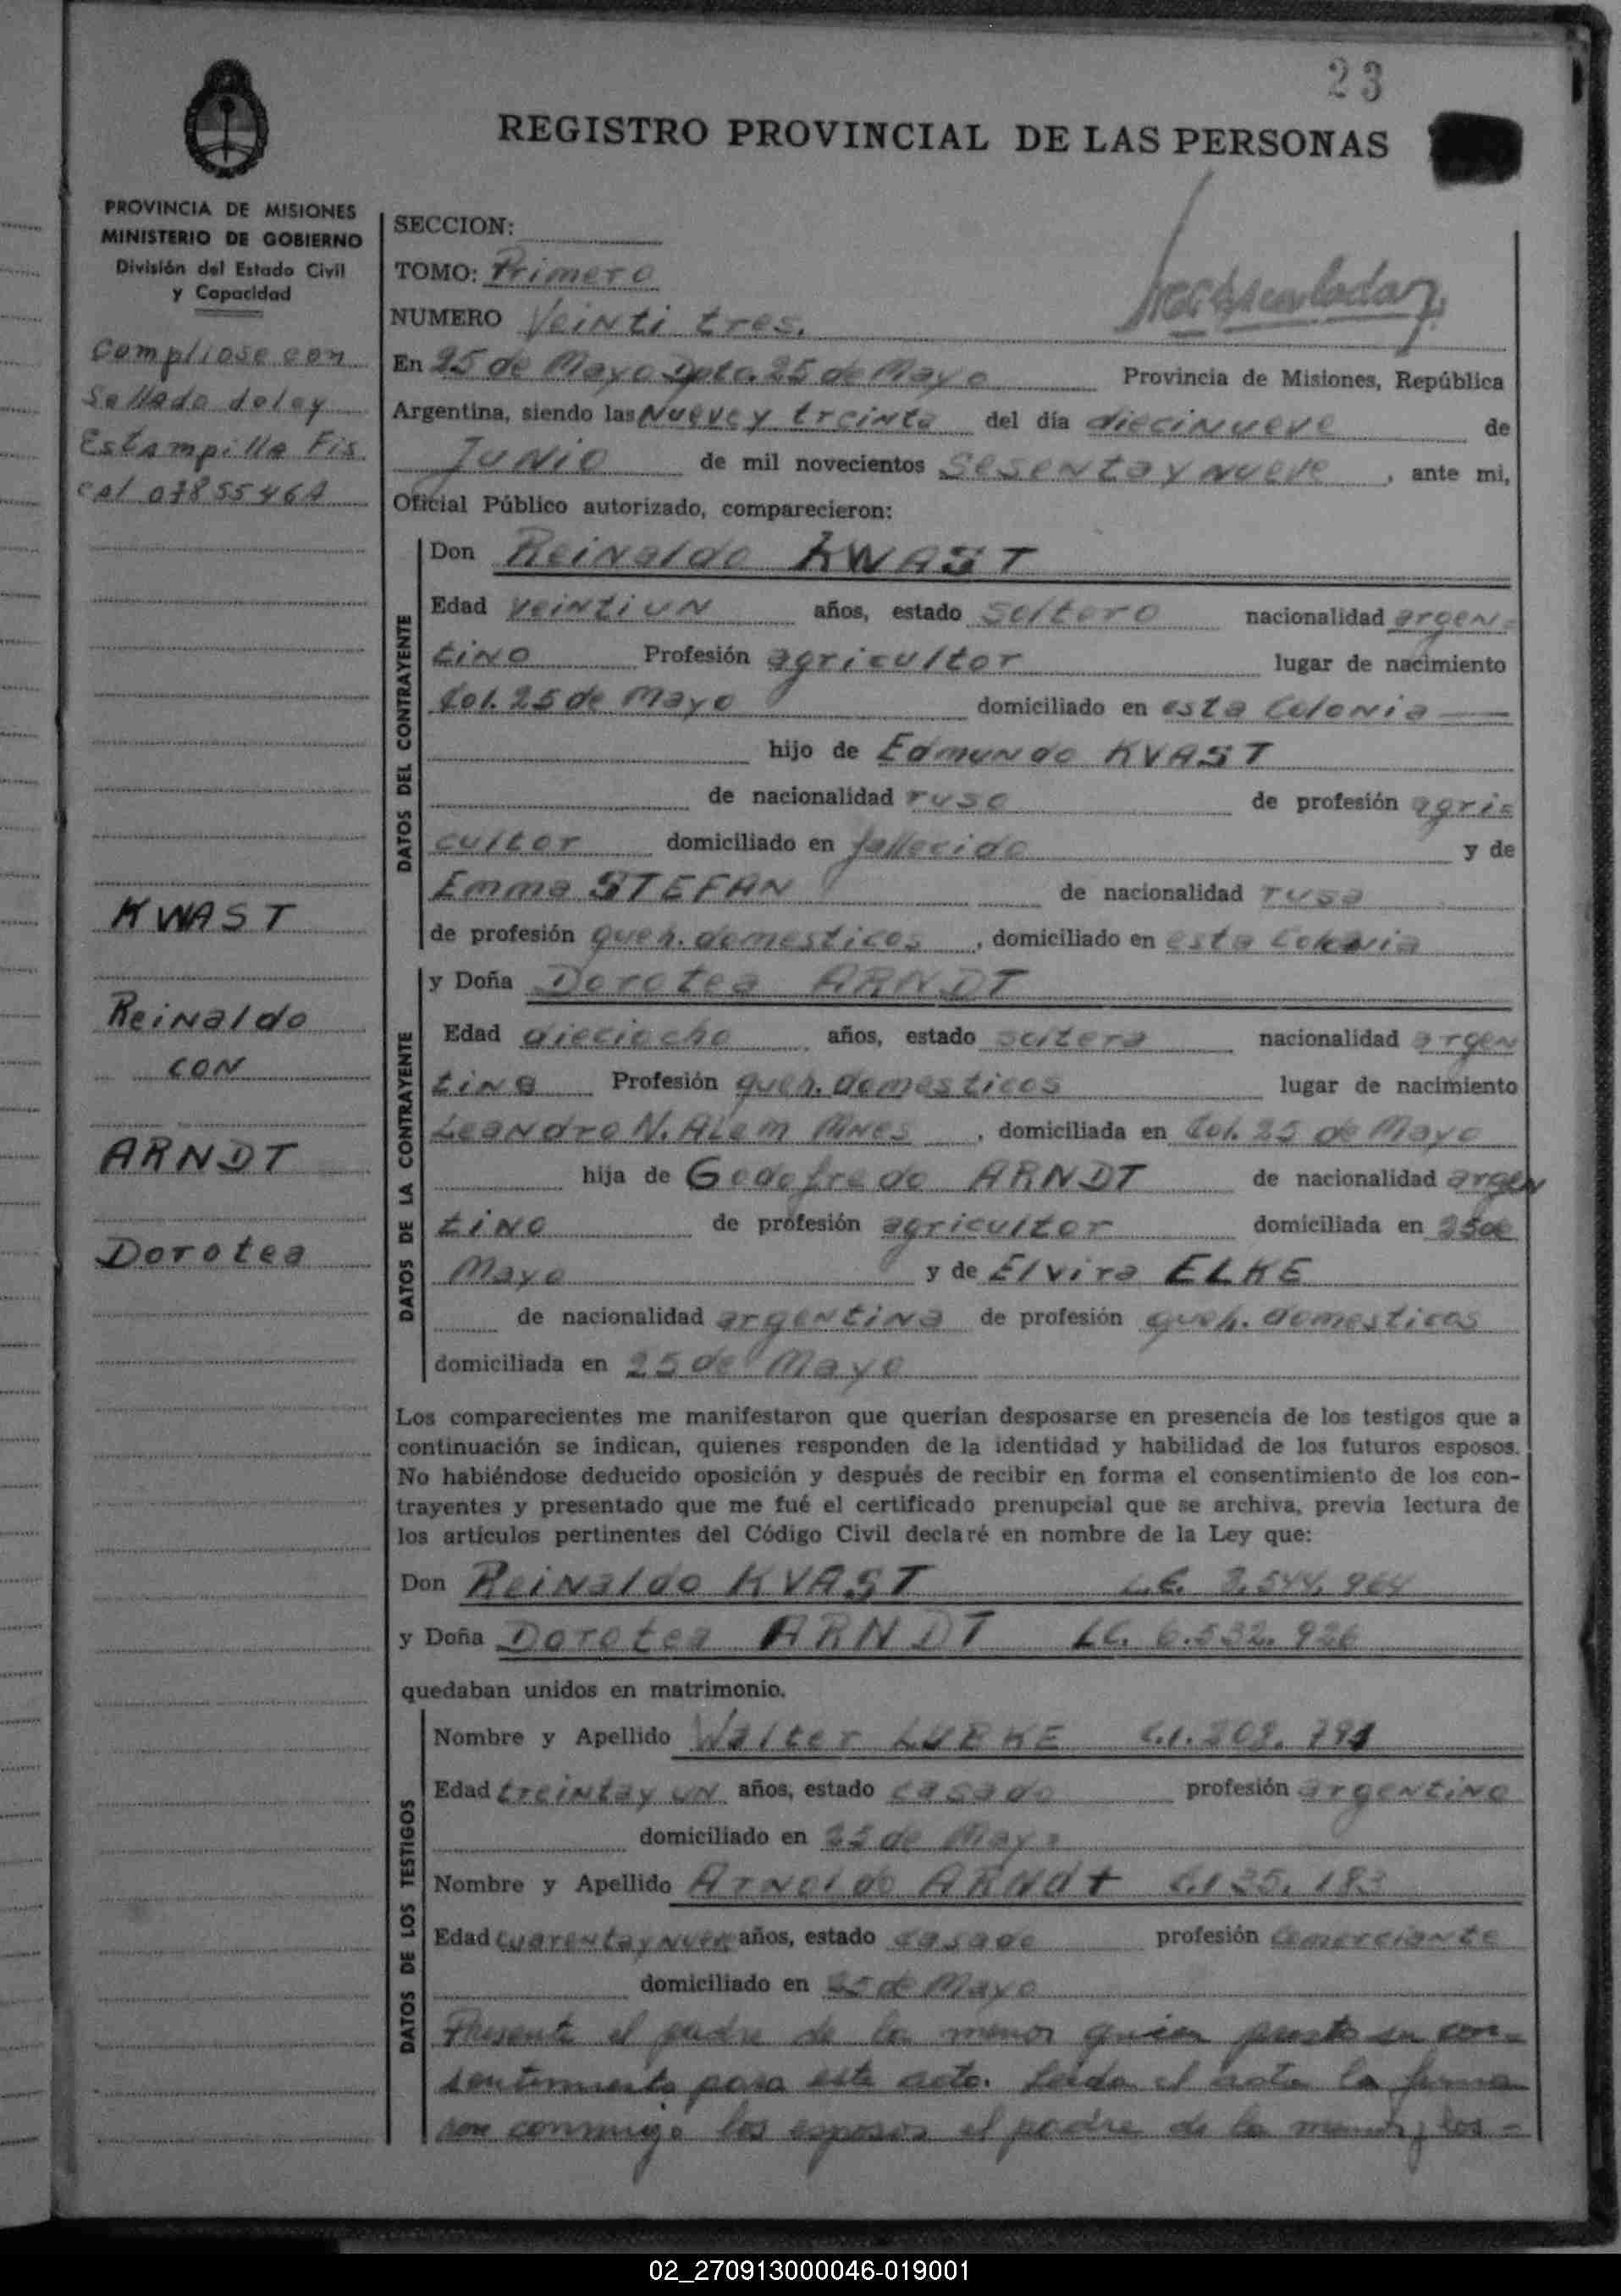 23
REGISTRO PROVINCIAL DE LAS PERSONAS
PROVINCIA DE MISIONES
MINISTERIO DE GOBIERNO
División del Estado Civil
y Capacidad
Compliose con
Sellado de ley
Estampilla Fis
cal
KWAST
Reinaldo
CON
ARNDT
Dorotea
SECCION:
TOMO: Primero
NUMERO Veinti tres.
En 25 de Mayo Dpto. 25 de Mayo Provincia de Misiones, República
Argentina, siendo las Nueve y treinta del día diecinueve de
Junio de mil novecientos sesenta y nueve, ante mi,
Oficial Público autorizado, comparecieron:
DATOS DEL CONTRAYENTE
Don Reinaldo KWAST
Edad veintiun años, estado soltero nacionalidad argen
tino Profesión agricultor lugar de nacimiento
Col. 25 de Mayo domiciliado en esta Colonia
hijo de Edmundo KVAST
de nacionalidad ruso de profesión agri
cultor domiciliado en fallecido y de
Emma STEFAN de nacionalidad rusa
de profesión queh. domesticos, domiciliado en esta Colonia
DATOS DE LA CONTRAYENTE
y Doña Dorotea ARNDT
Edad dieciocho años, estado soltera nacionalidad argen
tina Profesión queh. domesticos lugar de nacimiento
Leandro N. Alem Mnes, domiciliada en Col. 25 de Mayo
hija de Godofredo ARNDT de nacionalidad argen
tino de profesión agricultor domiciliada en 25 de
Mayo y de Elvira ELKE
de nacionalidad argentina de profesión queh. domesticos
domiciliada en 25 de Mayo
Los comparecientes me manifestaron que querían desposarse en presencia de los testigos que a
continuación se indican, quienes responden de la identidad y habilidad de los futuros esposos.
No habiéndose deducido oposición y después de recibir en forma el consentimiento de los con-
trayentes y presentado que me fué el certificado prenupcial que se archiva, previa lectura de
los artículos pertinentes del Código Civil declaré en nombre de la Ley que:
Don Reinaldo KVAST L.E. 8.544.964
y Doña Dorotea ARNDT LC. 6.532.926
quedaban unidos en matrimonio.
DATOS DE LOS TESTIGOS
Nombre y Apellido Walter LUBKE C.I.
Edad treinta y un años, estado casado profesión argentino
domiciliado en 25 de Mayo
Nombre y Apellido Arnoldo ARNdt C.I 35.183
Edad cuarenta y nueve años, estado casado profesión Comerciante
domiciliado en 25 de Mayo
Presente el padre de la menor quien presto su con-
sentimiento para este acto. Leida el acta la firma
ron conmigo los esposos el padre de la menor y los -
02_270913000046-019001